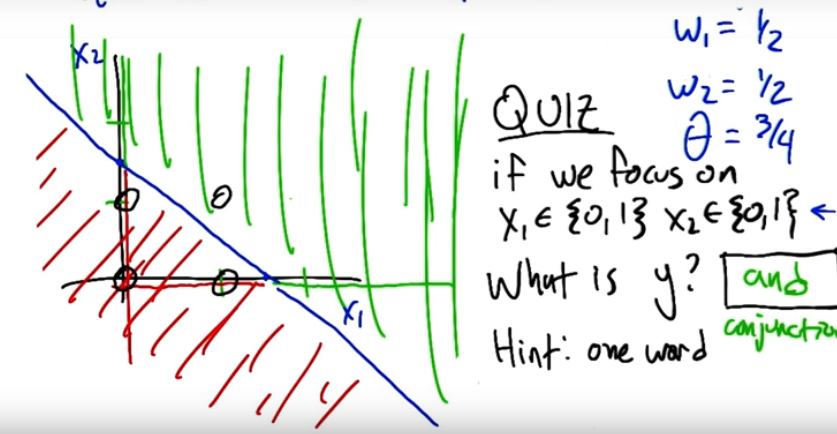 x₂
x₁
w₁ = ½
w₂ = ½
θ = ¾
QUIZ
if we focus on
x₁ ∈ {0, 1} x₂ ∈ {0, 1} ←
What is y? and
conjunctio
Hint: one word